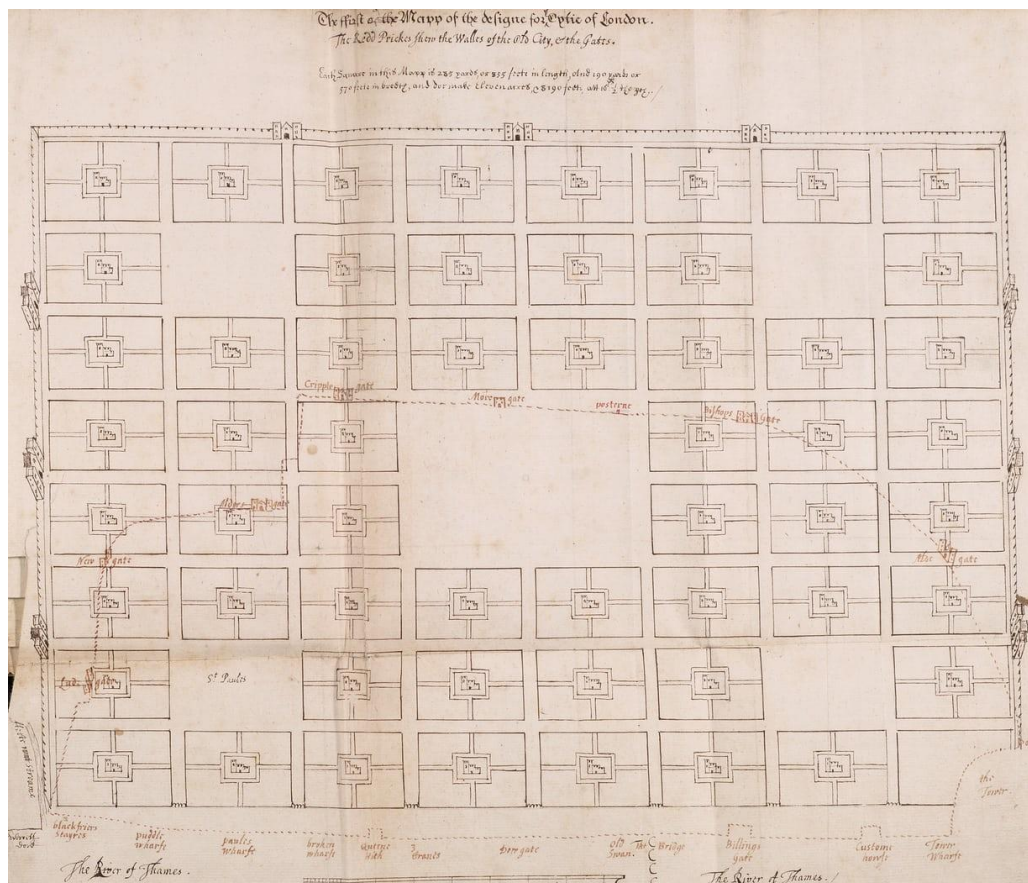 The first of the Mapp of the designe for Cytie of London.
The Redd Prickes shew the Walles of the Old City, & the Gates.
Each Square in this Mapp is 285 yards, or 855 feete in length, And 190 yards or
570 feete in bredth, and doe make Eleven acres,
Cripple gate
More gate
posterne
Bishops Gate
Alders gate
New gate
Alde gate
Lud gate
St Paules
the
Tower.
blackfriers
Stayres
puddle
wharfe
paules
wharfe
broken
wharfe
Queene
hith
3
Cranes
Dowgate
Old
Swan.
The Bridge
Billings
gate
Custome
howse
Tower
Wharfe
The River of Thames.
The River of Thames.